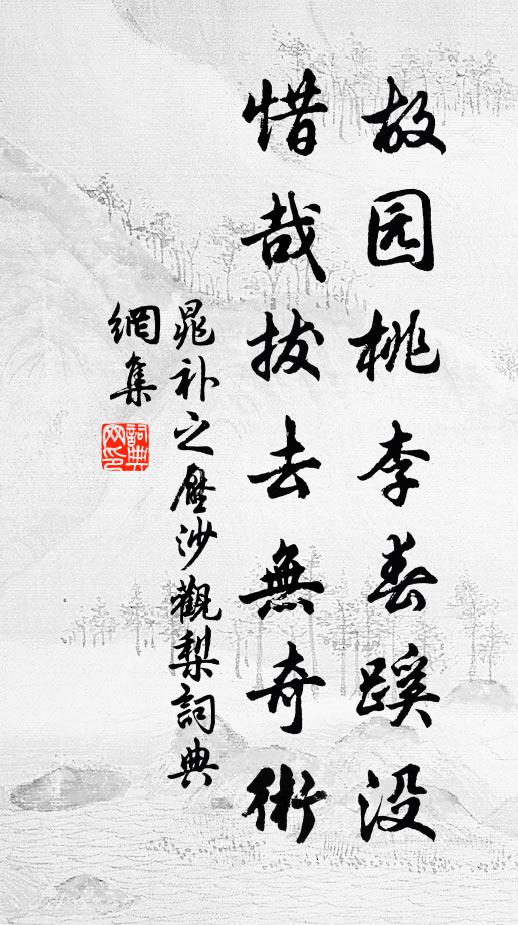 故园桃李春蹊没
惜哉拔去無奇術
晁补之壓沙觀梨詞典
網集
詞典网印